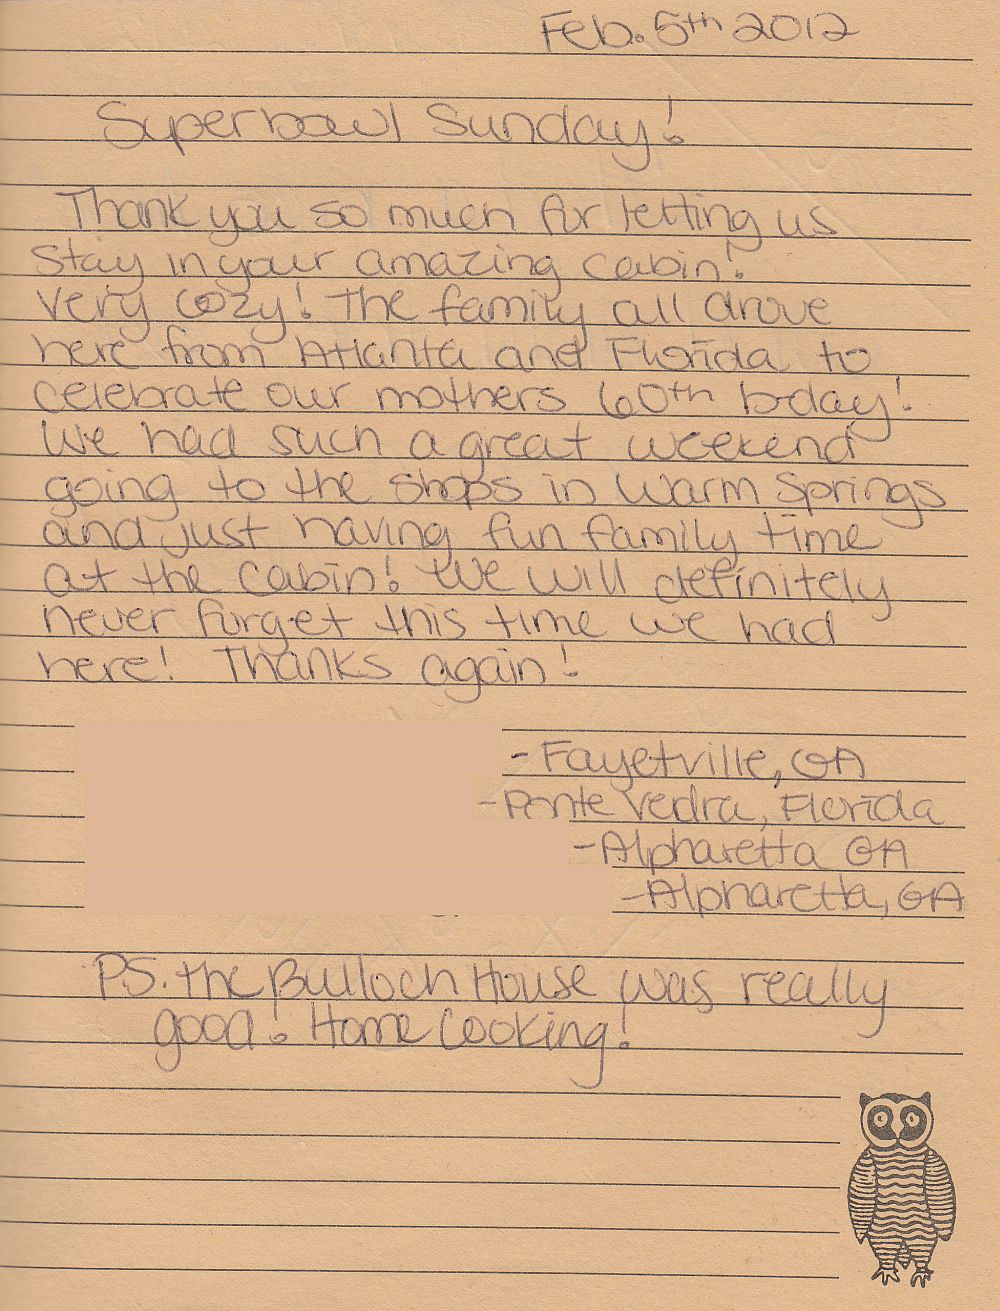 Feb. 5th 2012
Superbowl Sunday!
Thank you so much for letting us
stay in your amazing cabin!
Very cozy! The family all drove
here from Atlanta and Florida to
celebrate our mothers 60th b-day!
We had such a great weekend
going to the shops in Warm Springs
and just having fun family time
at the cabin! We will definitely
never forget this time we had
here! Thanks again!
- Fayetville, GA
- Ponte Vedra, Florida
- Alpharetta GA
- Alpharetta, GA
PS. the Bulloch House was really
good! Home Cooking!